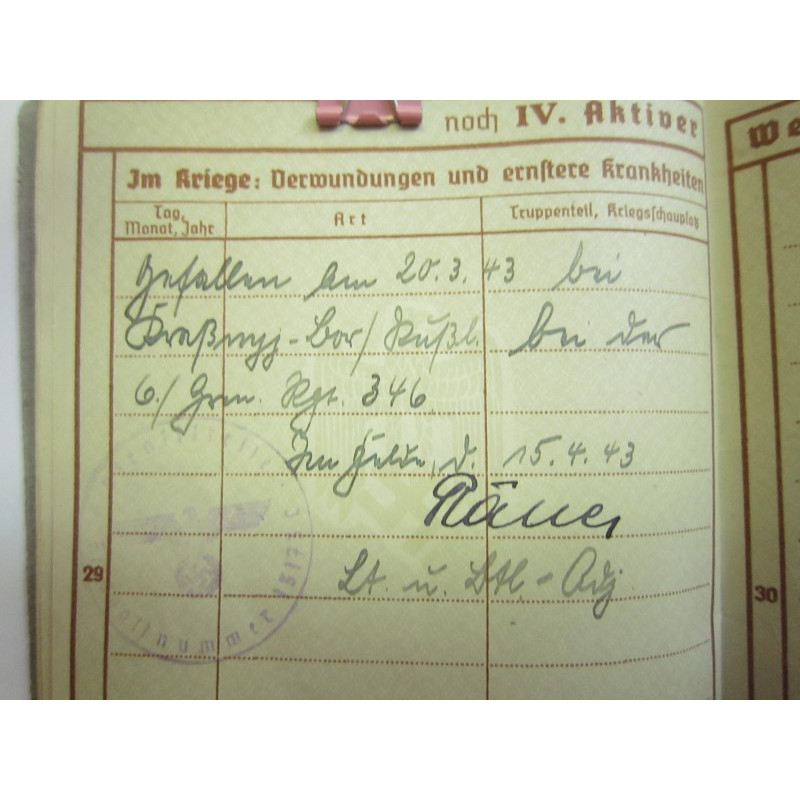 noch IV. Aktiver
We
Im Kriege: Verwundungen und ernstere Krankheiten
Tag, Monat, Jahr
Art
Truppenteil, Kriegsschauplatz
Gefallen am 20.3.43 bei
-Bor/Rußl. bei der
6./Gren. Rgt. 346
Im Felde, d. 15.4.43
Lt. u. Btl.-Adj
29
30